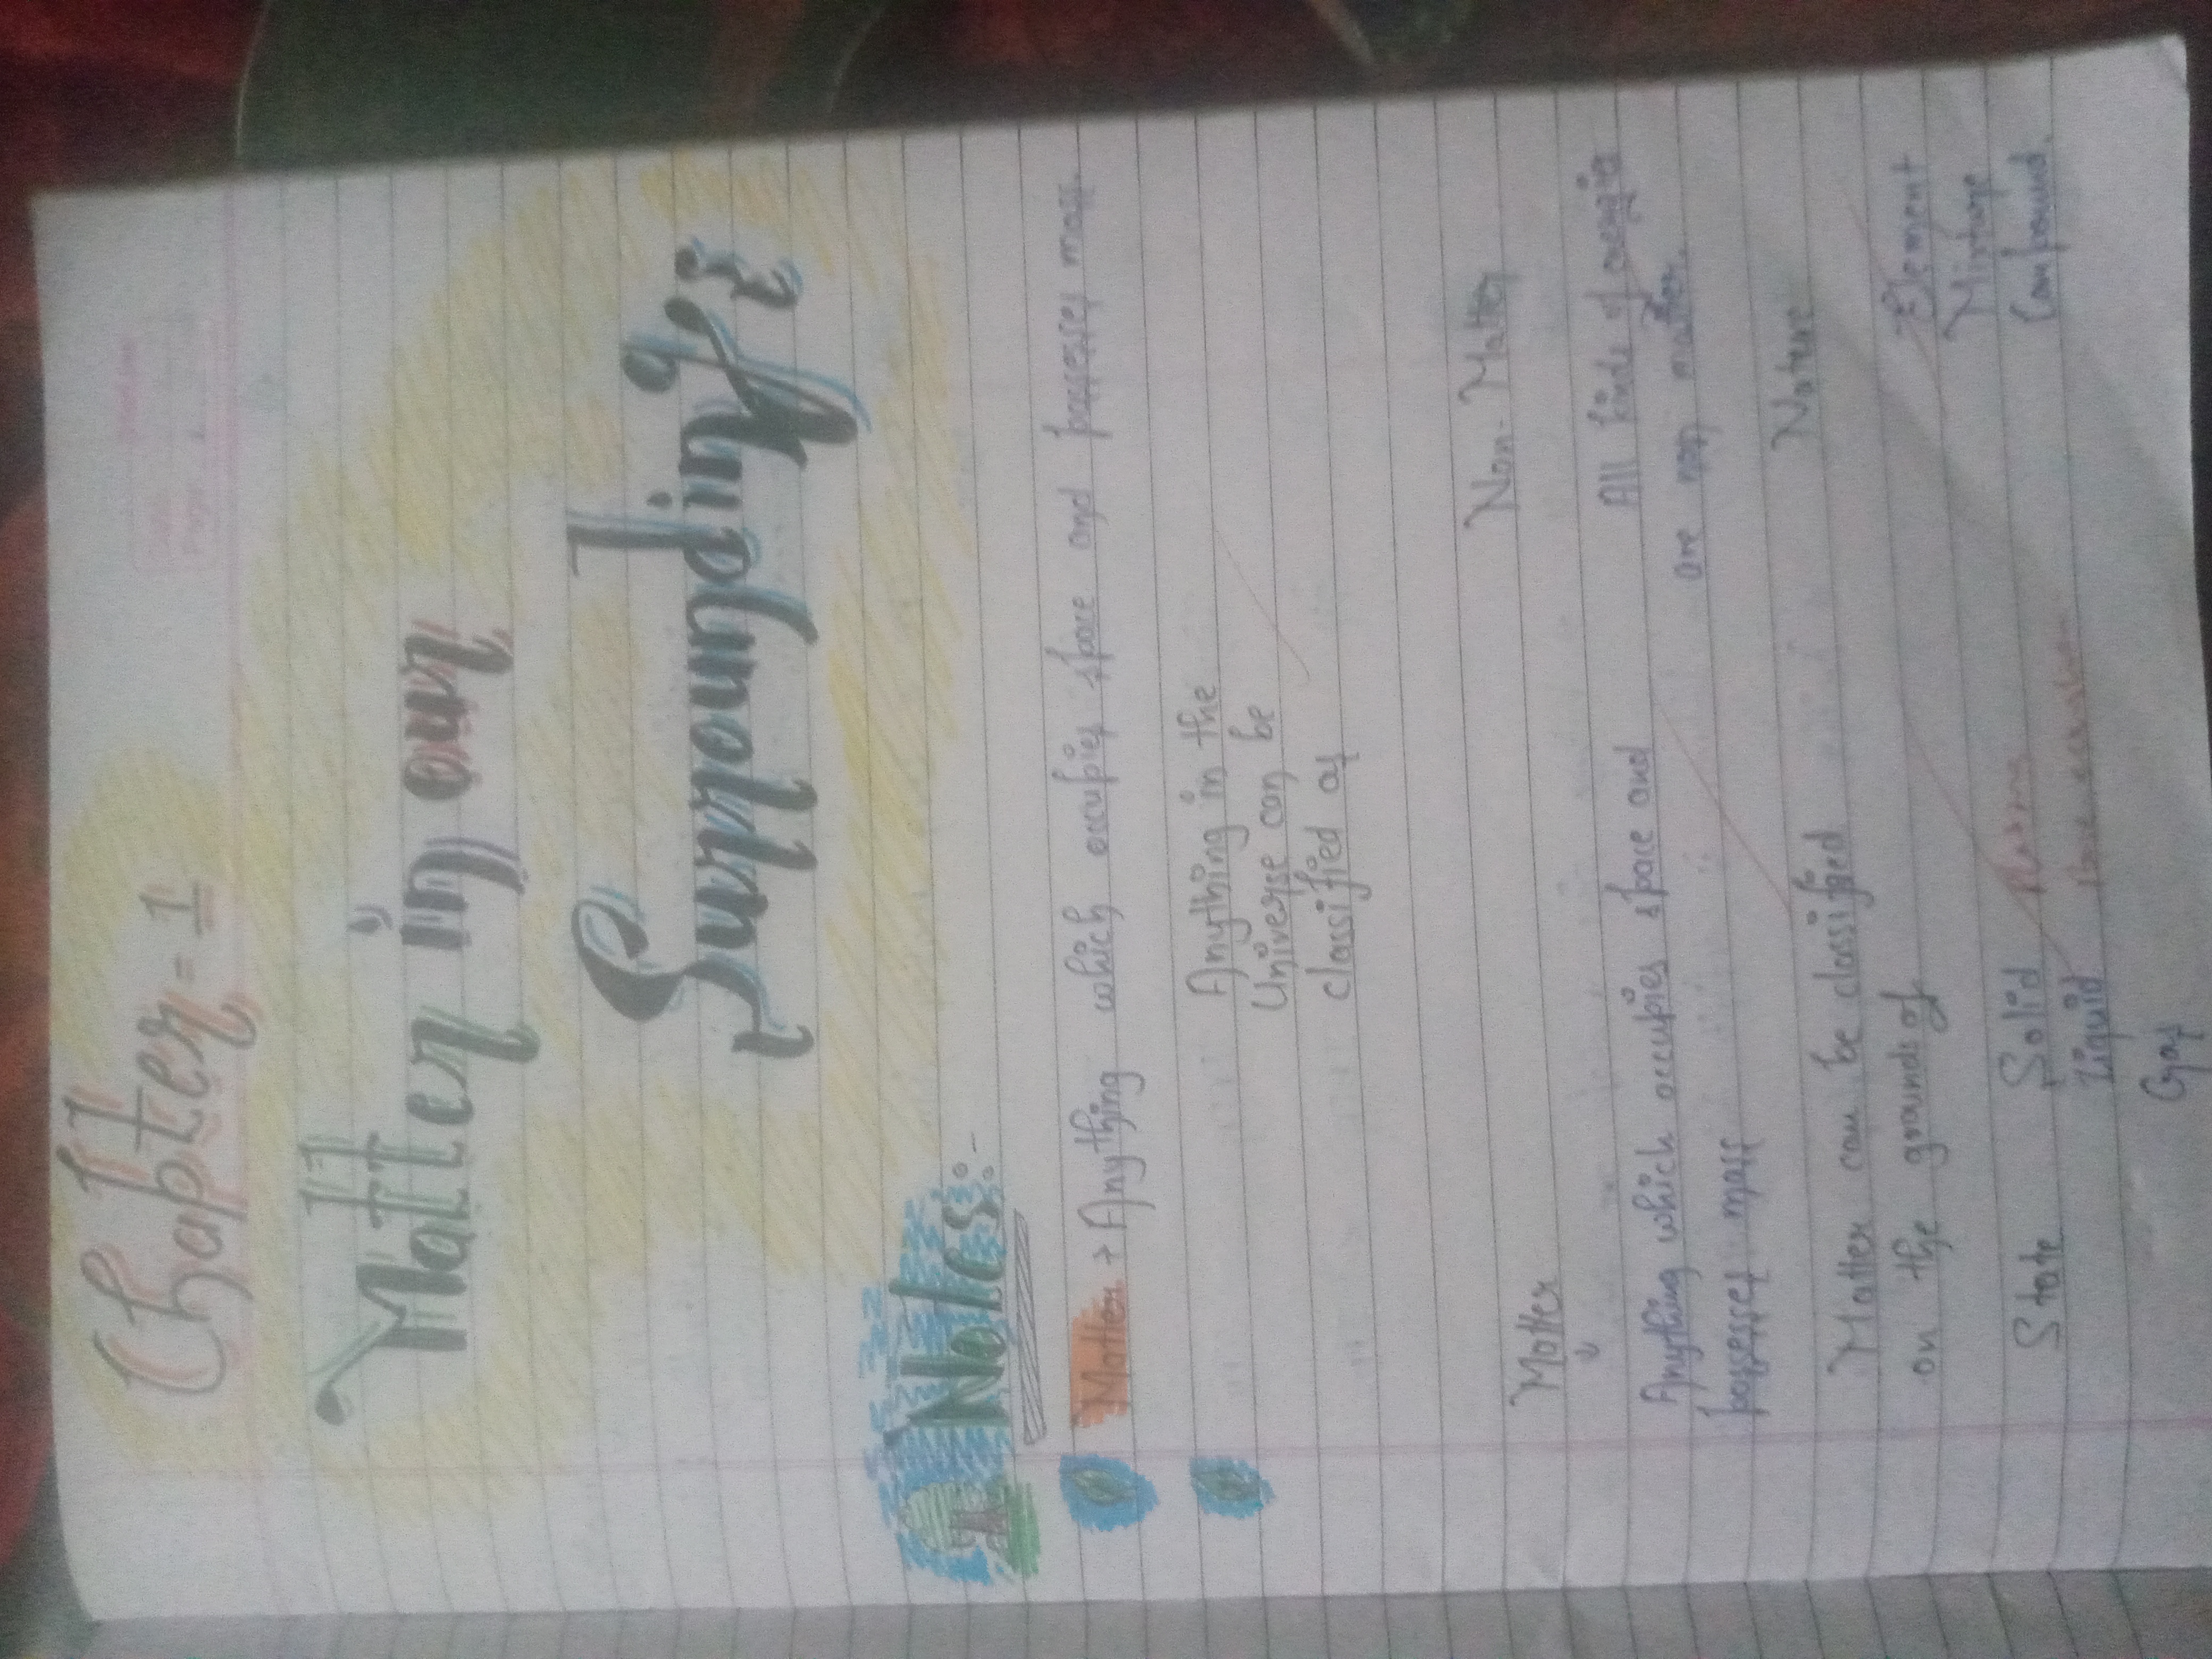 Chapter = 1
Matter in our
Surrounding's
Notes:-
Matter → Anything which occupies space and possesses mass.
Anything in the
Universe can be
classified as
Matter
Non-Matter
Anything which occupies space and
possesses mass
All kinds of
are non matter.
Matter can be classified
on the grounds of
Nature
State
Solid
Liquid
Gas
Element
Mixture
Compound.